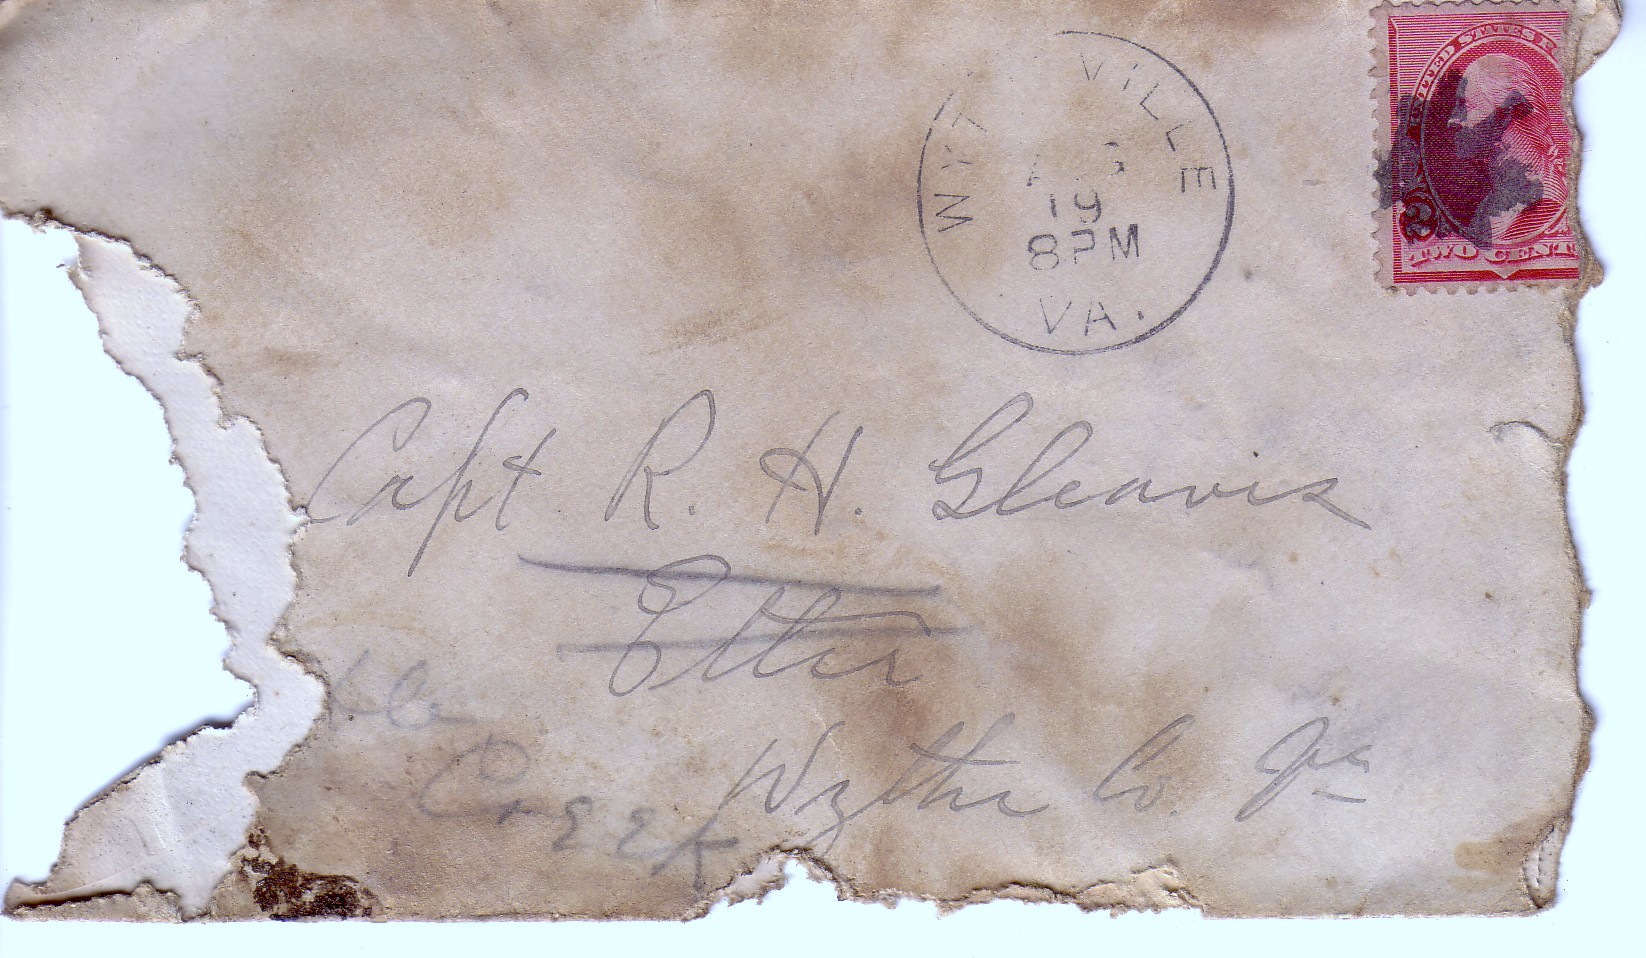 WYT VILLE
A G
19
8PM
VA.
UNITED STATES
2
TWO CENT
Capt. R. H. Gleaves
Etter
Creek Wythe Co. Va